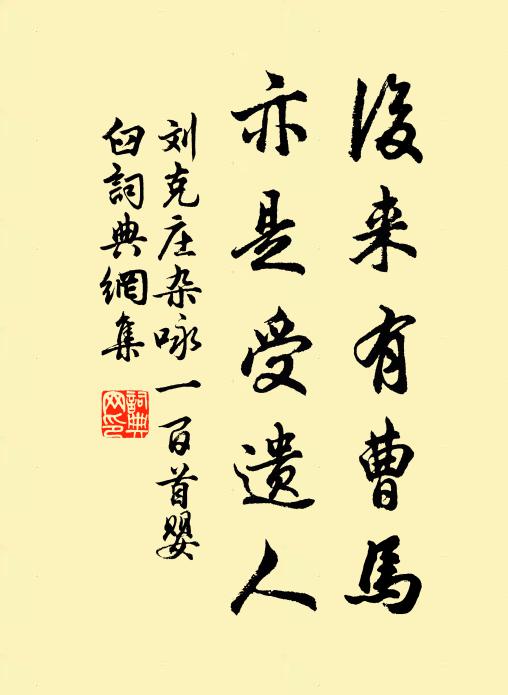 後来有曹馬
亦是受遗人
刘克庄杂咏一百首婴
臼詞典網集
詞典
网印